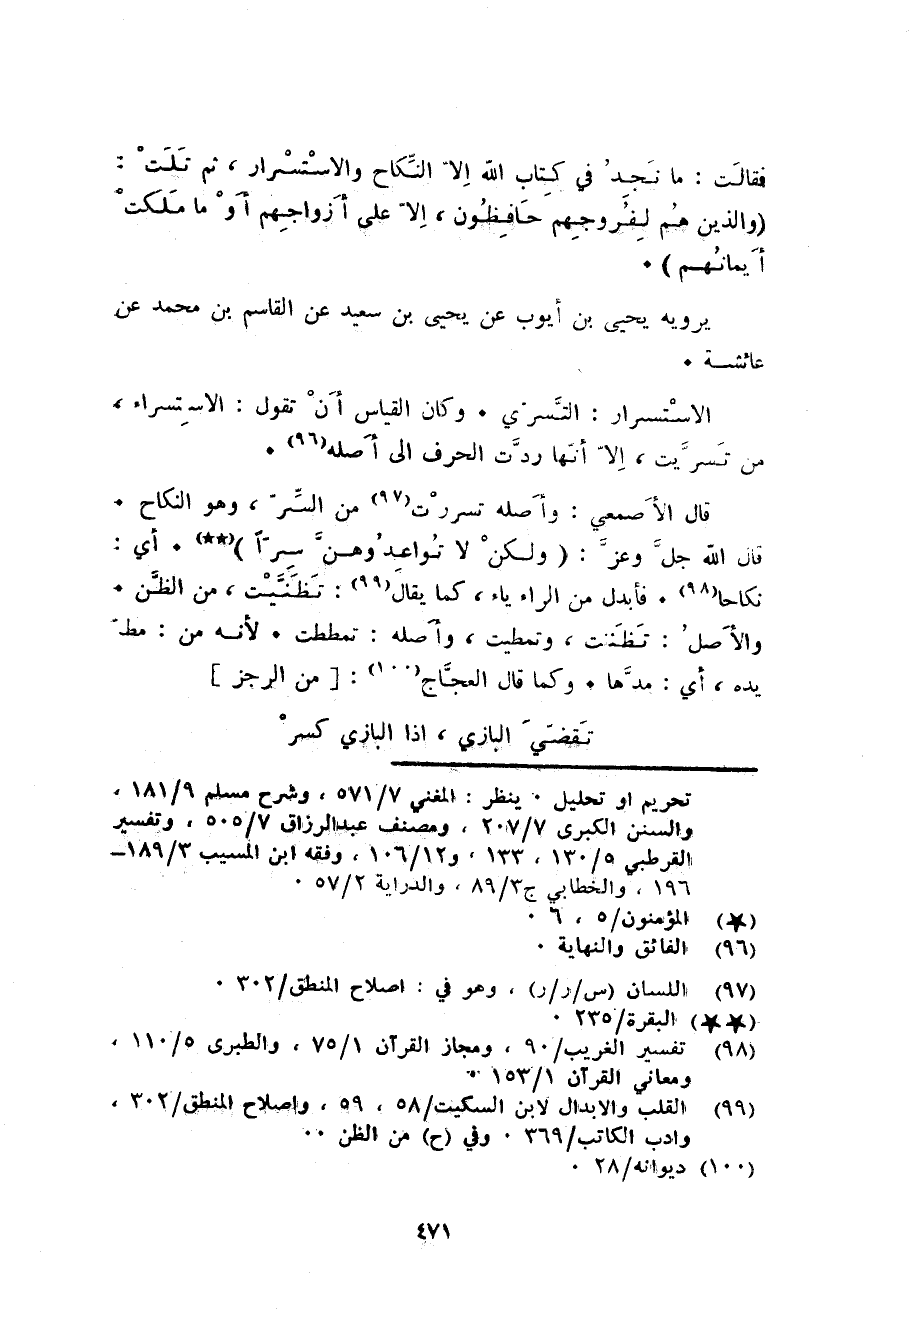 فقالَت : ما نَجِدُ في كِتابِ الله إلاّ النِّكاح والاسْتْسْرار ، ثم تَلَتْ :
(والذين هُم لِفُروجِهم حَافِظُون ، إلاّ على أَزواجِهم أَوْ ما مَلَكتْ
أَيمانُهم ) ٠
يرويه يحيى بن أيوب عن يحيى بن سعيد عن القاسم بن محمد عن
عائشة ٠
الاسْتسرار : التَّسرّي ٠ وكان القياس أَنْ تقول : الاستِسراء ،
من تَسرَّيت ، إلاّ أنّها ردَّت الحرف الى أَصله(٩٦) ٠
قال الأَصمعي : وأَصله تسررْت(٩٧) من السِّرّ ، وهو النكاح ٠
قال الله جلَّ وعزَّ : ( ولكنْ لا تُواعِدُوهنَّ سِرّاً )(★★) ٠ أي :
نكاحا(٩٨) ٠ فأبدل من الراء ياء ، كما يقال(٩٩) : تَظَنَّيْت ، من الظَّن ٠
والأَصلُ : تَظَنَّنت ، وتمطيت ، وأَصله : تمططت ٠ لأنه من : مطّ
يده ، أي : مدَّها ٠ وكما قال العجَّاج(١٠٠) : [ من الرجز ]
تَقضّيَ البازي ، اذا البازي كسرْ
تحريم او تحليل ٠ ينظر : المغني ٥٧١/٧ ، وشرح مسلم ١٨١/٩ ،
والسنن الكبرى ٢٠٧/٧ ، ومصنف عبدالرزاق ٥٠٥/٧ ، وتفسير
القرطبي ١٣٠/٥ ، ١٣٣ ، و١٠٦/١٢ ، وفقه ابن المسيب ١٨٩/٣ــ
١٩٦ ، والخطابي ج٨٩/٣ ، والدراية ٥٧/٢ ٠
(★) المؤمنون/٥ ، ٦ ٠
(٩٦) الفائق والنهاية ٠
(٩٧) اللسان (س/ر/ر) ، وهو في : اصلاح المنطق/٣٠٢ ٠
(★★) البقرة/٢٣٥ ٠
(٩٨) تفسير الغريب/٩٠ ، ومجاز القرآن ٧٥/١ ، والطبرى ١١٠/٥ ،
ومعاني القرآن ١٥٣/١ ٠
(٩٩) القلب والابدال لابن السكيت/٥٨ ، ٥٩ ، واصلاح المنطق/٣٠٢ ،
وادب الكاتب/٣٦٩ ٠ وفي (ح) من الظن ٠٠
(١٠٠) ديوانه/٢٨ ٠
٤٧١